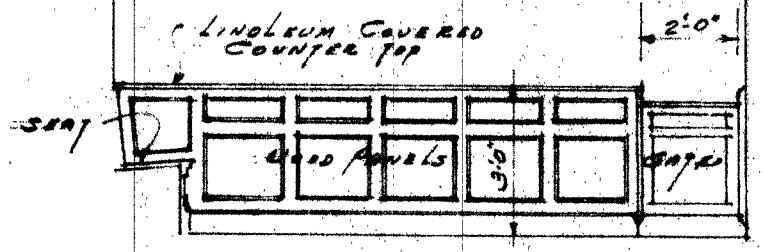 LINOLEUM COVERED
COUNTER TOP
2'-0"
SEAT
WOOD PANELS
3'-0"
GATE